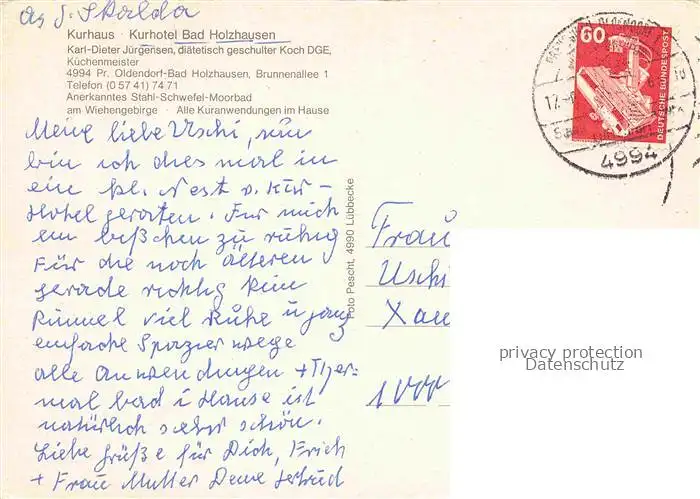 Kurhaus · Kurhotel Bad Holzhausen
Karl-Dieter Jürgensen, diätetisch geschulter Koch DGE,
Küchenmeister
4994 Pr. Oldendorf-Bad Holzhausen, Brunnenallee 1
Telefon (0 57 41) 74 71
Anerkanntes Stahl-Schwefel-Moorbad
am Wiehengebirge · Alle Kuranwendungen im Hause
Meine liebe Uschi, nun
bin ich dies mal in
ein kl. Nest v. Kur-
Hotel geraten. Für mich
ein bißchen zu ruhig
Für die noch älteren
gerade richtig kein
Rummel viel Ruhe u ganz
einfache Spazierwege
alle Anwendungen + Ther=
mal bad i Hause ist
natürlich sehr schön.
Liebe Grüße für Dich, Erich
+ Frau Mutter Deine Gertrud
Foto Pescht, 4990 Lübbecke
Frau
Uschi
Xan
1000
60
DEUTSCHE BUNDESPOST
4994
privacy protection
Datenschutz